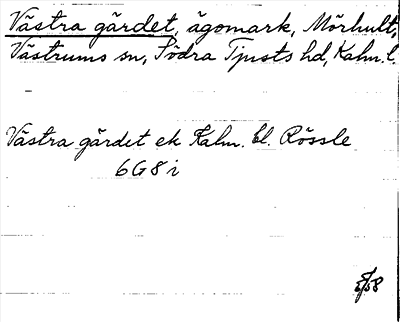 Västra gärdet, ägomark, Mörhult,
Västrums sn, Södra Tjusts hd, Kalm. l.
Västra gärdet ek Kalm. bl. Rössle
6G8i